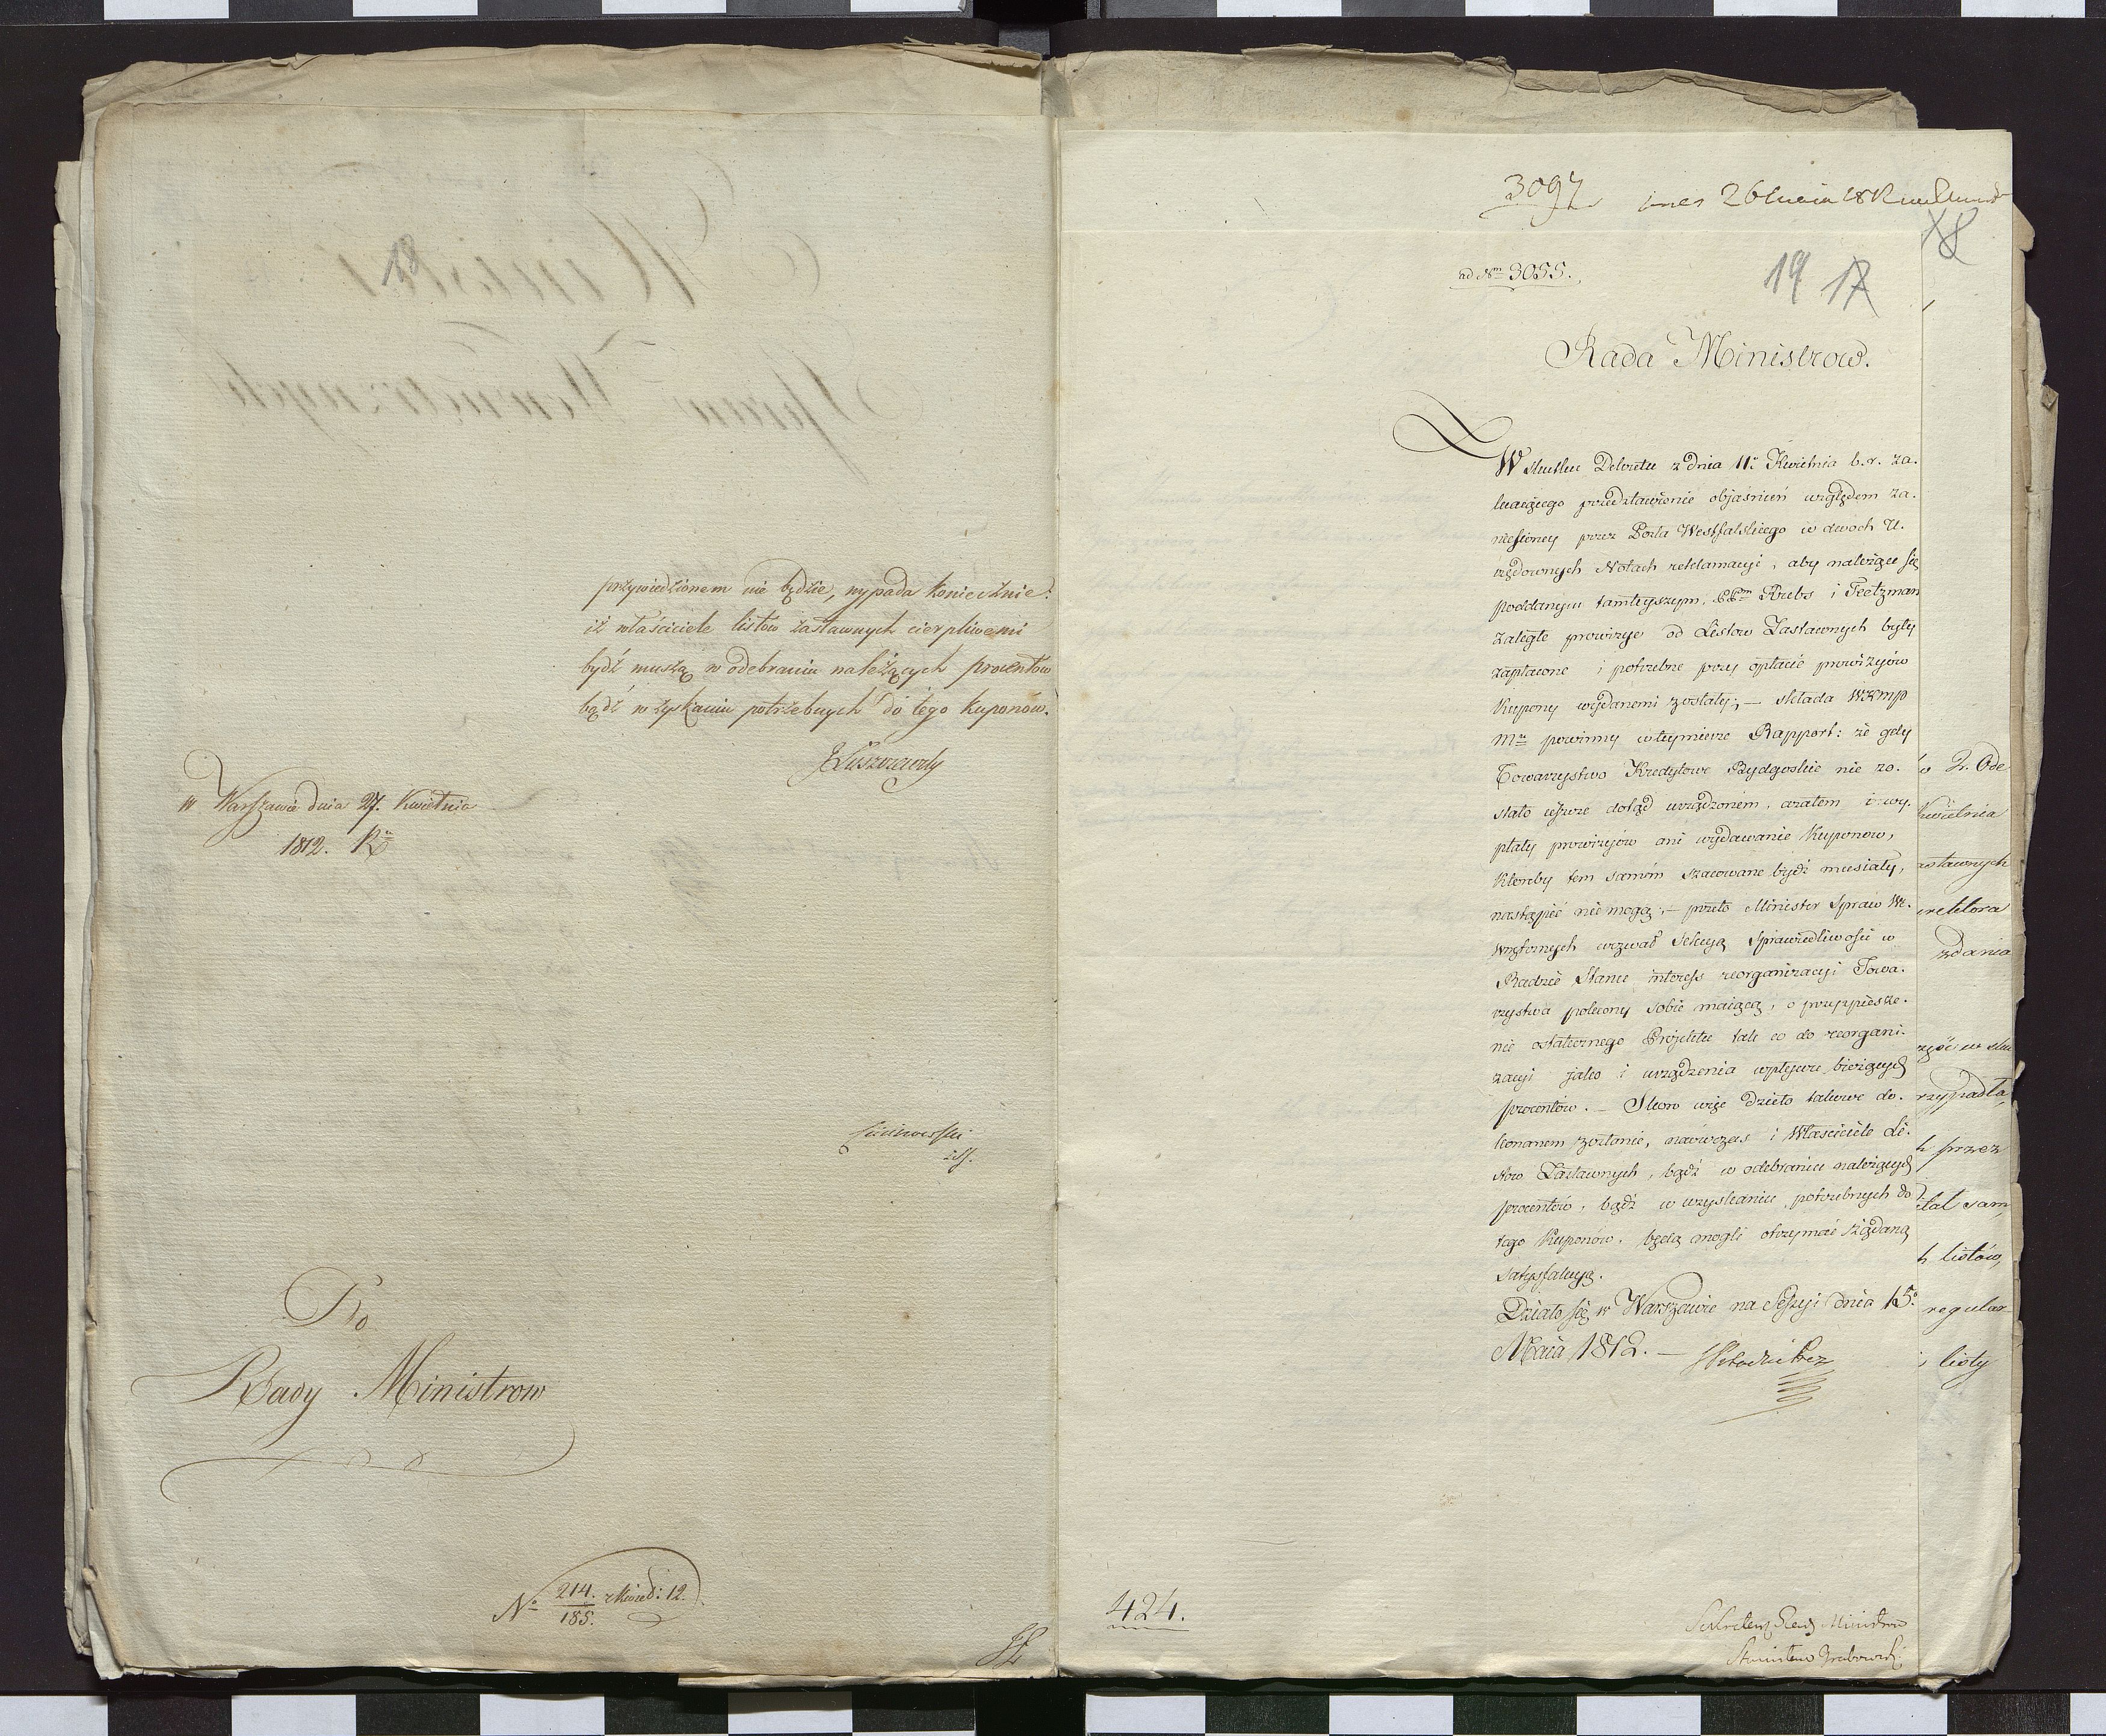 18
przywiedzionem nie będzie, wypada koniecznie:
iż właściciele listow zastawnych cierpliwemi
bydź muszą w odebraniu należących procentow
bądź w zyskaniu potrzebnych do tego kuponów.
JŁuszczewski
w Warszawie dnia 27. Kwietnia
1812. Rº
Do
Rady Ministrow
Nº 214./185. z Kwiet: 12.
3097 26 1812
18
ad Nrm 3055.
19 17
Rada Ministrow.
W skutku Dekretu z dnia 11º Kwietnia b.r. za-
lecaiącego przedstawienie objaśnień względem za-
niesioney przez Posła Westfalskiego w dwoch U-
rzędownych Notach reklamacyi, aby należące się
poddanym tamteyszym, PPm Krebs i Teetzman
zaległe prowizye od Listow Zastawnych były
zapłacone i potrzebne przy opłacie prowizyów
Kupony wydanemi zostały; — składa WCKMP
Mu powinny w teymierze Rapport: że gdy
Towarzystwo Kredytowe Bydgoskie nie zo-
stało ieszcze dotąd urządzonem, a zatem i wy-
płaty prowizyów ani wydawanie Kuponow,
któreby tem samém szacowane bydź musiały,
nastąpić nie mogą; — przeto Minister Spraw We-
wnętrznych wezwał Sekcyą Sprawiedliwości w
Radzie Stanu interess reorganizacyi Towa-
rzystwa polecony sobie maiącą, o przyspiesze-
nie ostatecznego Projektu tak co do reorgani-
zacyi jako i urządzenia wpływu bieżących
procentów. — Skoro więc dzieło takowe do-
konanem zostanie, naówczas i Właściciele Li-
stow Zastawnych, bądź w odebraniu należących
procentów, bądź w uzyskaniu potrzebnych do
tego Kuponów, będą mogli otrzymać żądaną
satysfakcyą.
Działo się w Warszawie na Sessyi dnia 15º
Maia 1812. —
o 2. Ode
Kwietnia
astawnych
rektora
zdania
rzypadła,
h przez
sam,
h listów,
regular
i listy
424.
Sekretarz Rady Ministrow
Stanisław Grabowski